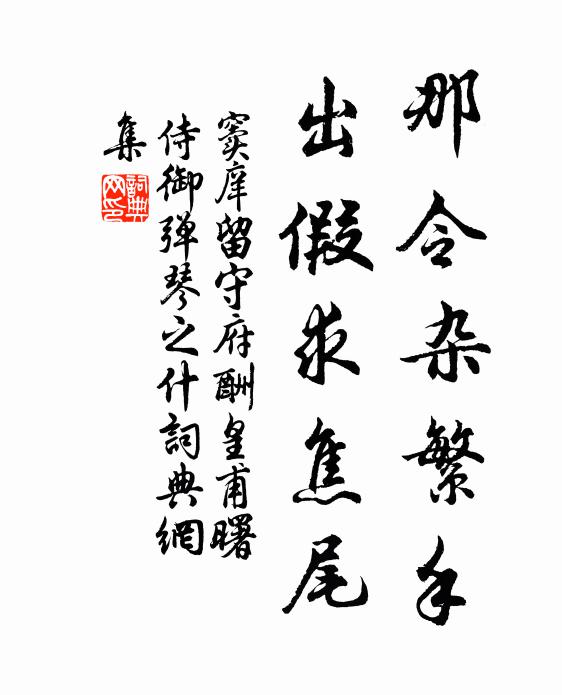 那令杂繁手
出假求焦尾
窦庠留守府酬皇甫曙
侍御弹琴之什詞典網
集
詞典
网印